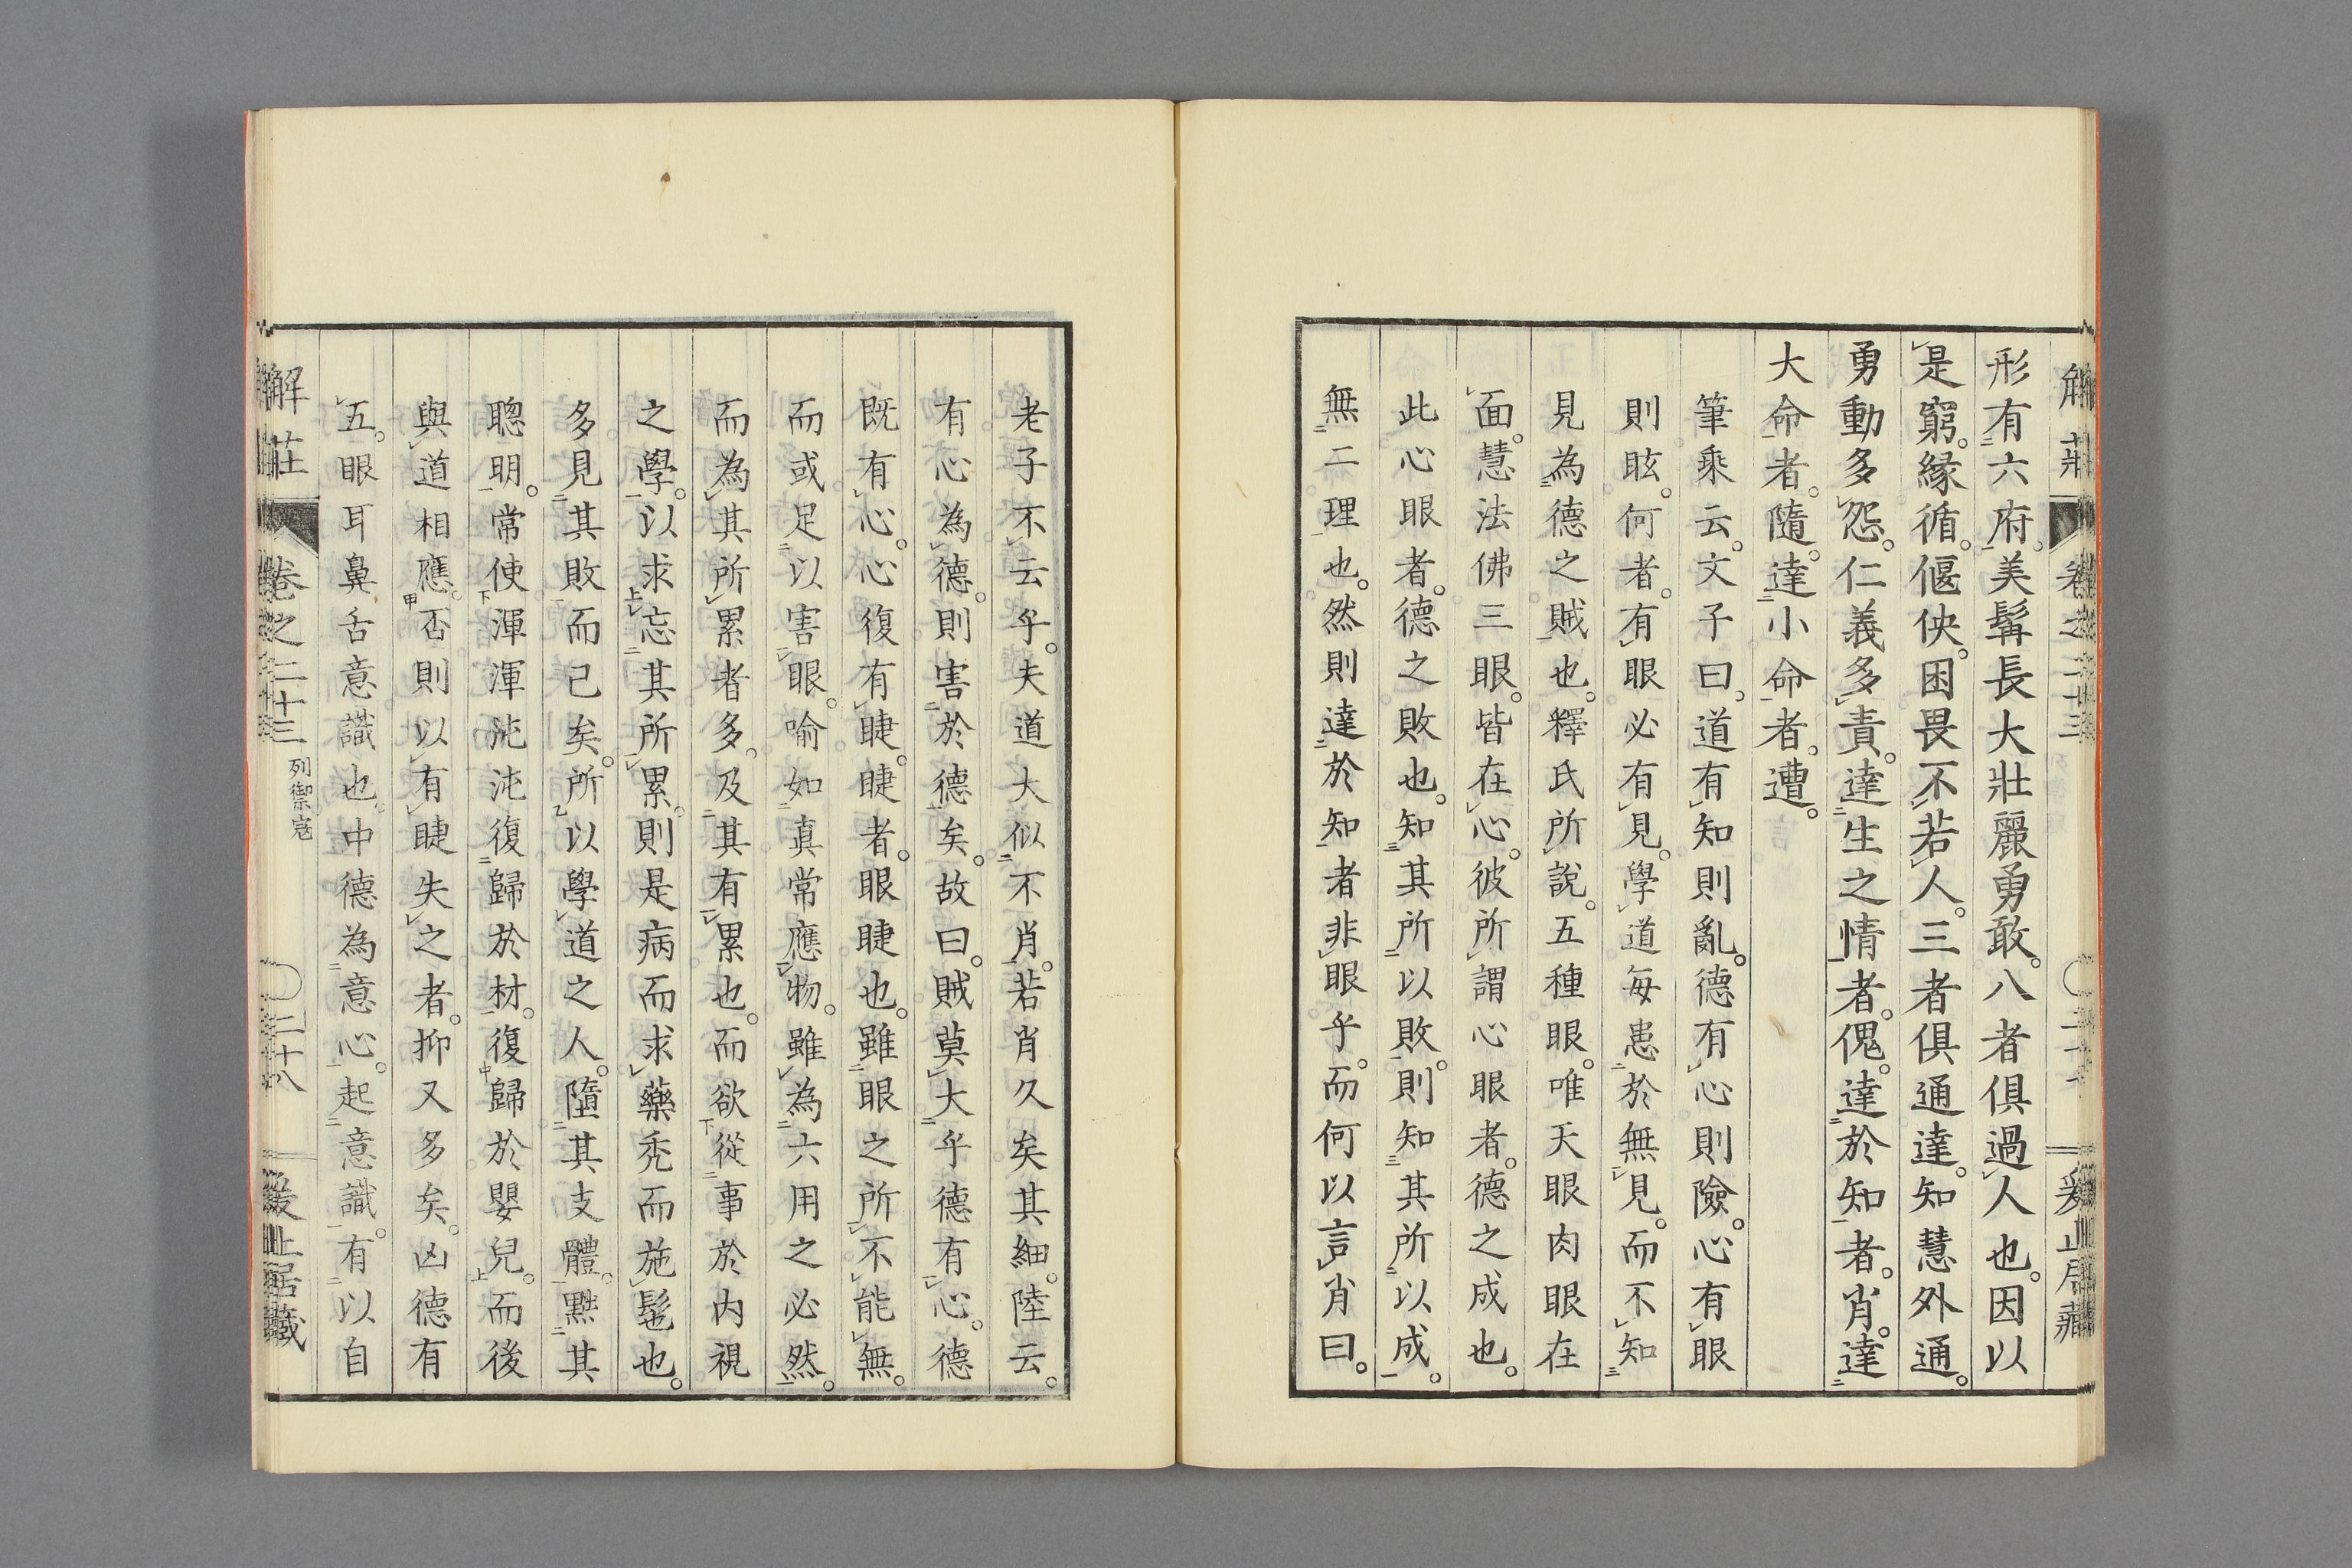 解莊 卷之二十三
形有六府。美髯長大壯麗勇敢。八者俱過人也。因以
是窮。緣循。偃佒。困畏不若人。三者俱通達。知慧外通。
勇動多怨。仁義多責。達生之情者。傀。達於知者。肖。達
大命者。隨。達小命者。遭。
筆乘云。文子曰。道有知則亂。德有心則險。心有眼
則眩。何者。有眼必有見。學道每患於無見。而不知
見為德之賊也。釋氏所說。五種眼。唯天眼肉眼在
面。慧法佛三眼。皆在心。彼所謂心眼者。德之成也。
此心眼者。德之敗也。知其所以敗。則知其所以成。
無二理也。然則達於知者非眼乎。而何以言肖曰。
老子不云乎。夫道大似不肖。若肖久矣其細。陸云。
有心為德。則害於德矣。故曰。賊莫大乎德有心。德
既有心。心復有睫。睫者。眼睫也。雖眼之所不能無。
而或足以害眼。喻如真常應物。雖為六用之必然。
而為其所累者多。及其有累也。而欲從事於內視
之學。以求忘其所累。則是病而求藥禿而施髢也。
多見其敗而已矣。所以學道之人。墮其支體。黜其
聰明。常使渾渾沌沌復歸於材。復歸於嬰兒。而後
與道相應。否則以有睫失之者。抑又多矣。凶德有
五。眼耳鼻舌意識也。中德為意心。起意識。有以自
解莊 卷之二十三 列禦寇 二十八 爰止居藏